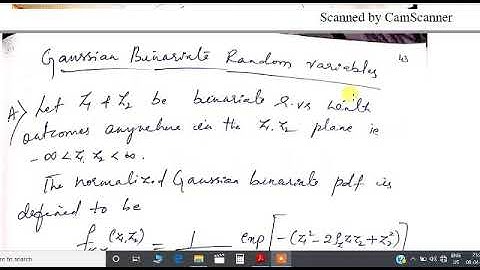 Scanned by CamScanner
Gaussian Binariate Random variables
43
A) Let Z1 & Z2 be binariate r.vs with
outcomes anywhere in the Z1 Z2 plane ie
-∞ < Z1, Z2 < ∞.
The normalized Gaussian binariate pdf is
defined to be
(Z1,Z2) = 1 exp[-(Z1² - 2ρZ1Z2 + Z2²)]
ENG